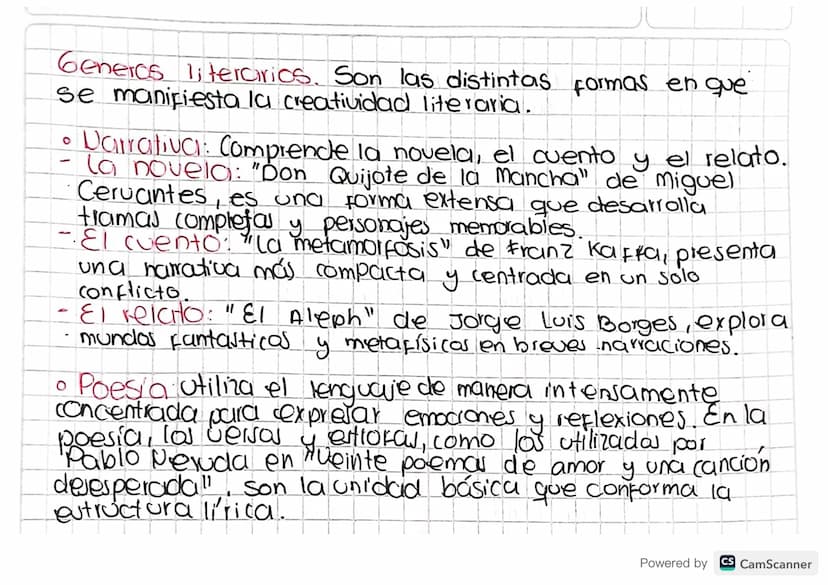 Generos literarios. Son las distintas formas en que
se manifiesta la creatividad literaria.
Narrativa: Comprende la novela, el cuento y el relato.
- La novela: "Don Quijote de la Mancha" de Miguel
Cervantes, es una forma extensa que desarrolla
tramas complejas y personajes memorables.
- El cuento: "La metamorfosis" de Franz Kaffa, presenta
una narrativa más compacta y centrada en un solo
conflicto.
- El relato: "El Aleph" de Jorge Luis Borges, explora
mundos fantasticos y metafísicos en breves narraciones.
Poesía utiliza el lenguaje de manera intensamente
concentrada para expresar emociones y reflexiones. En la
poesía, los versos y estrofas, como los utilizados por
Pablo Neruda en "Veinte poemas de amor y una canción
desesperada", son la unidad básica que conforma la
estructura lírica.
Powered by CS CamScanner